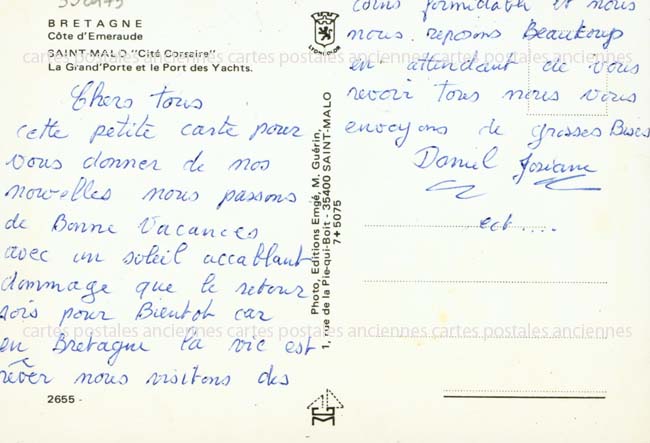 BRETAGNE
Côte d'Emeraude
SAINT-MALO "Cité Corsaire"
La Grand'Porte et le Port des Yachts.
Chers Tous
cette petite carte pour
vous donner de nos
nouvelles nous passons
de Bonne Vacances
avec un soleil accablant
dommage que le retour
sois pour Bientot car
en Bretagne la vie est
rêver nous visitons des
2655 -
LYONCOLOR
Photo, Editions Emgé, M. Guérin,
1, rue de la Pie-qui-Boit - 35400 SAINT-MALO
7+5075
coins formidable et nous
nous reposons Beaucoup
en attendant de vous
revoir Tous nous vous
envoyons de grosses Bises
Daniel Josiane
ect....
cartes postales anciennes cartes postales anciennes cartes postales anciennes
cartes postales anciennes cartes postales anciennes cartes postales anciennes